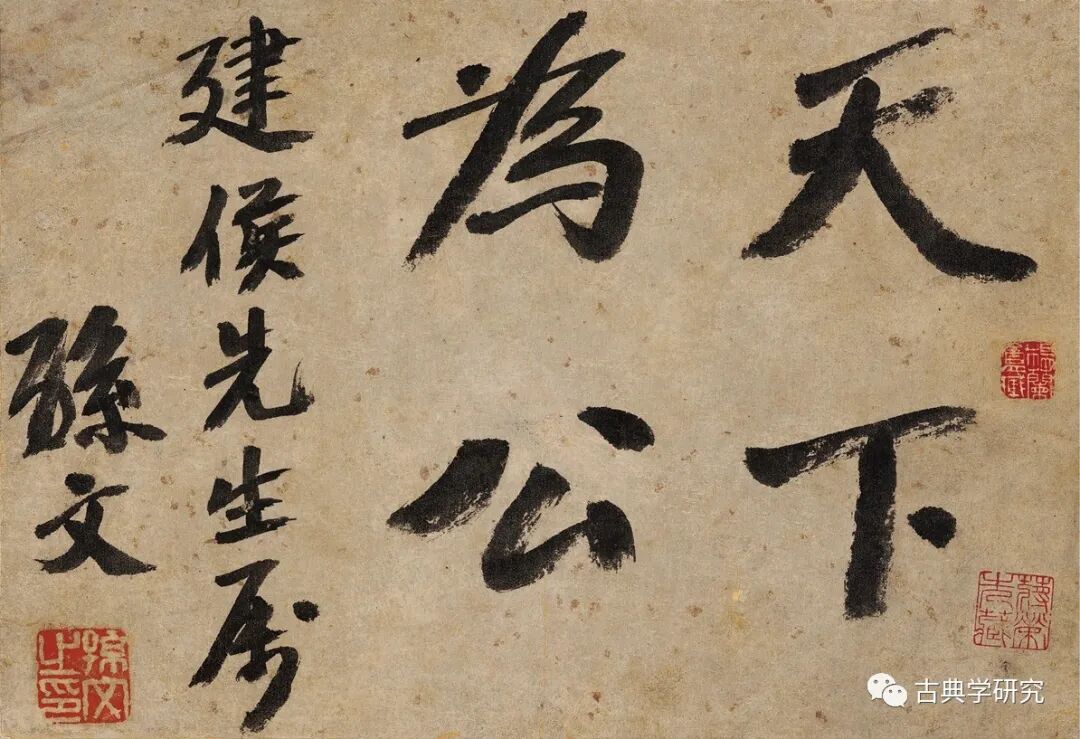 天下
為公
建侯先生属
孫文
孫文之印
古典学研究